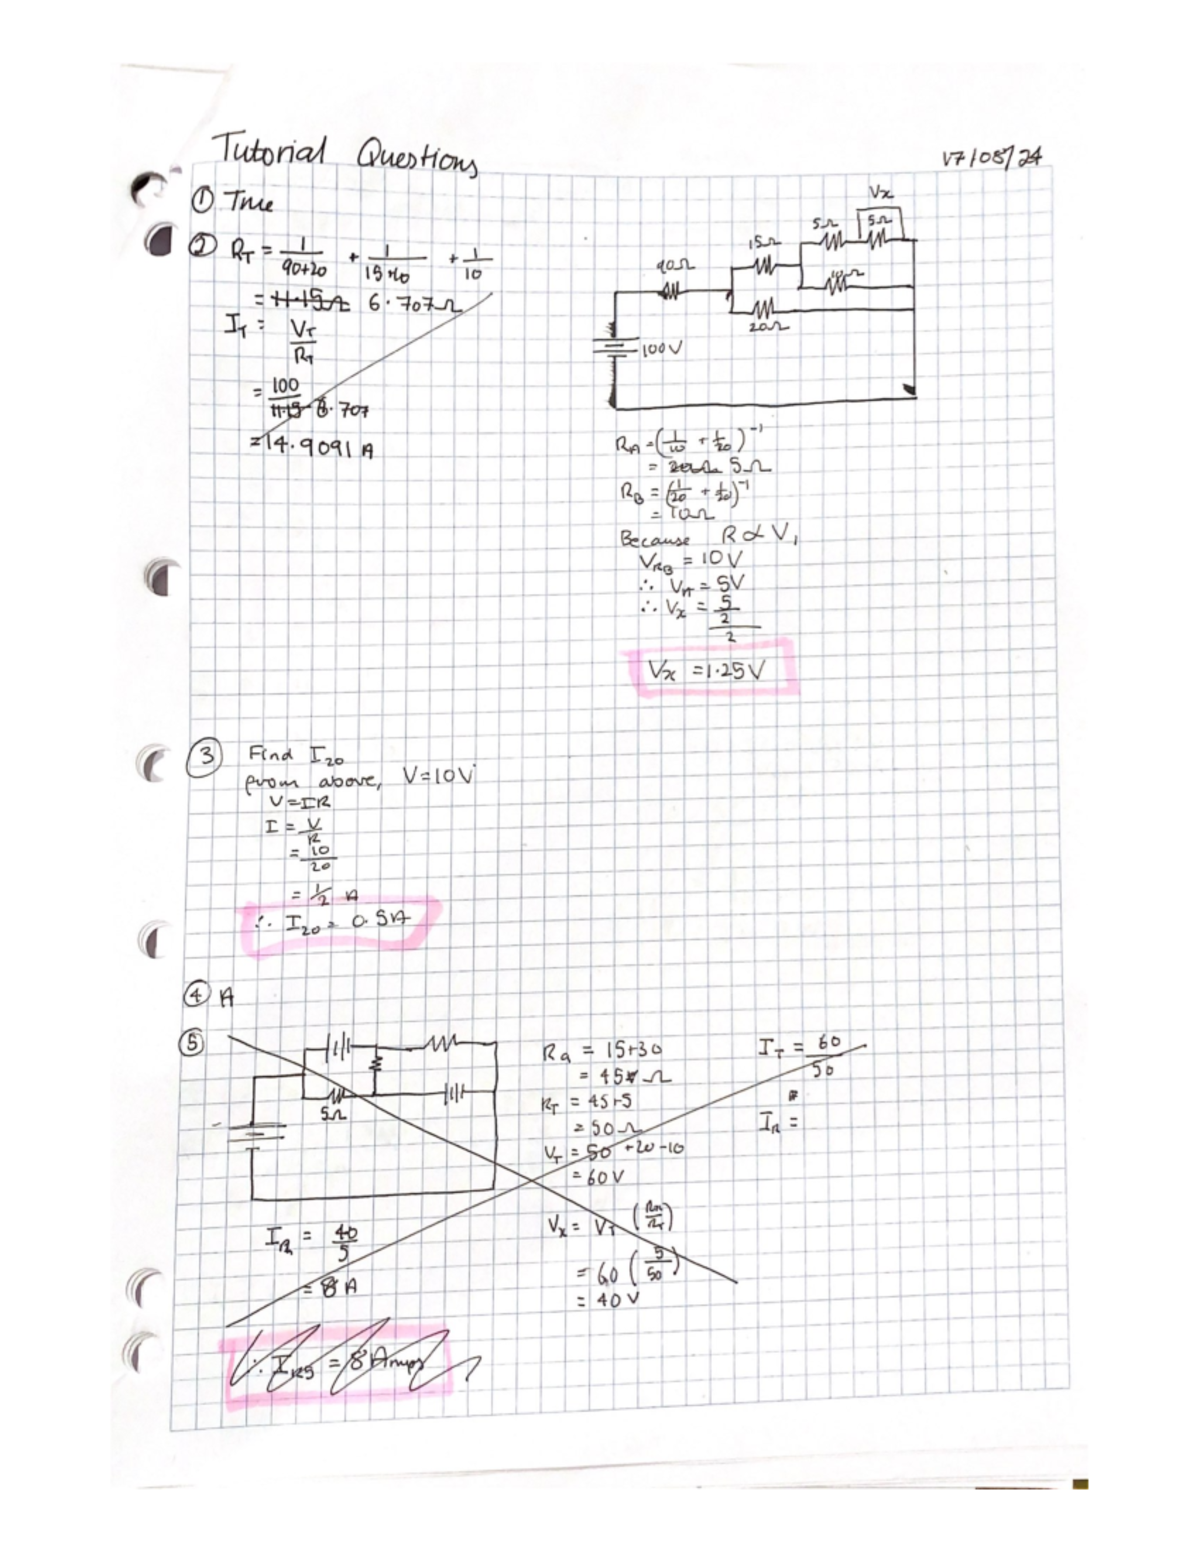 Tutorial Questions
17/08/24
① True
② RT = 1/(90+20) + 1/(15+10) + 1/10
= 11.15Ω 6.707Ω
IT = VT/RT
= 100/11.15 6.707
= 14.9091 A
Vx
5Ω
5Ω
15Ω
90Ω
10Ω
20Ω
100V
RA = (1/10 + 1/20)^-1
= 5Ω
RB = (1/20 + 1/20)^-1
= 10Ω
Because R ∝ V,
VRB = 10V
∴ VA = 5V
∴ Vx = 5/2/2
Vx = 1.25V
③ Find I20
from above, V=10V
V=IR
I = V/R
= 10/20
= 1/2 A
∴ I20 = 0.5A
④ A
⑤
5Ω
IR = 40/5
= 8 A
∴ IR5 = 8 Amps
Ra = 15+30
= 45Ω
RT = 45+5
= 50Ω
VT = 50+20-10
= 60V
Vx = VT (Rn/RT)
= 60 (5/50)
= 40V
IT = 60/50
IR =